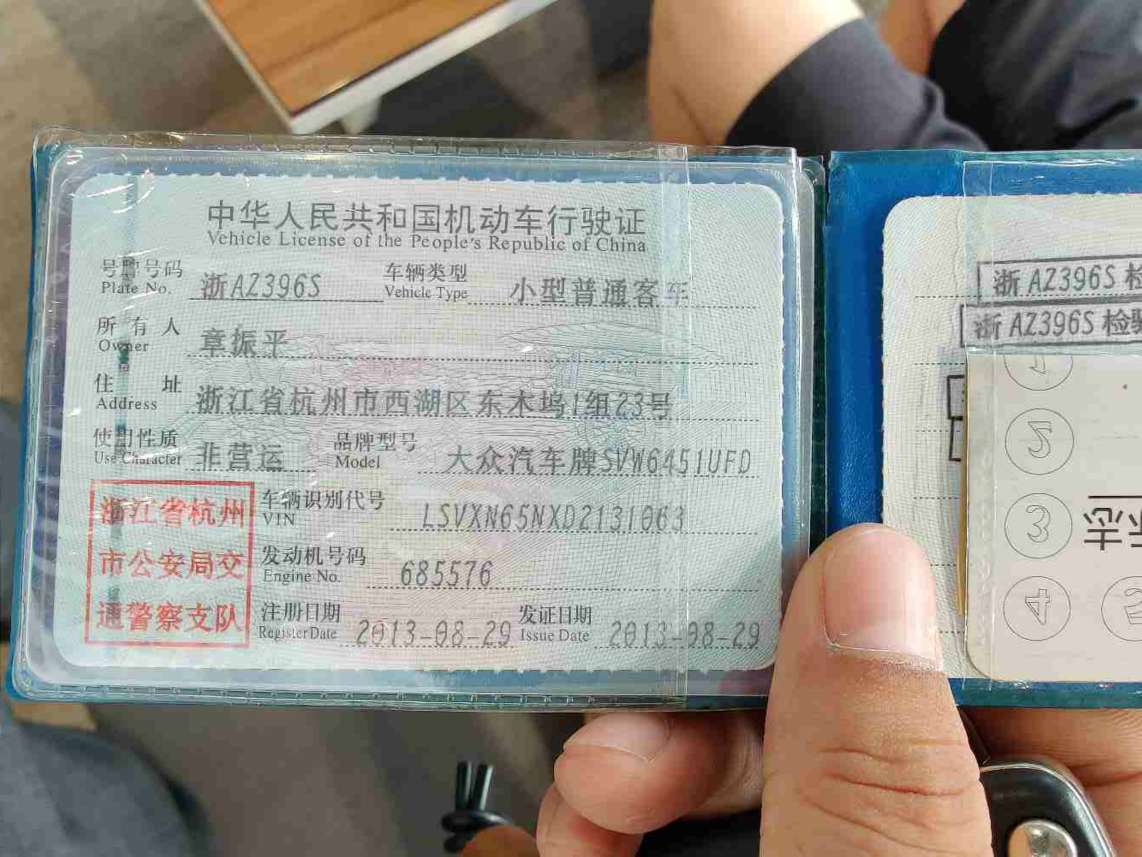 中华人民共和国机动车行驶证
Vehicle License of the People's Republic of China
号牌号码 浙AZ396S 车辆类型 小型普通客车
Plate No. Vehicle Type
所有人 章振平
Owner
住址 浙江省杭州市西湖区东木坞1组23号
Address
使用性质 非营运 品牌型号 大众汽车牌SVW6451UFD
Use Character Model
浙江省杭州
市公安局交
通警察支队
车辆识别代号 LSVXN65NXD2131063
VIN
发动机号码 685576
Engine No.
注册日期 2013-08-29 发证日期 2013-08-29
Register Date Issue Date
浙AZ396S 检
浙AZ396S 检验
2
3
4
志